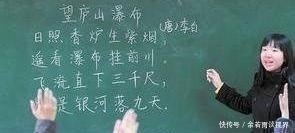 望庐山瀑布
(唐)李白
日照香炉生紫烟,
遥看瀑布挂前川。
飞流直下三千尺,
是银河落九天。
快传号/